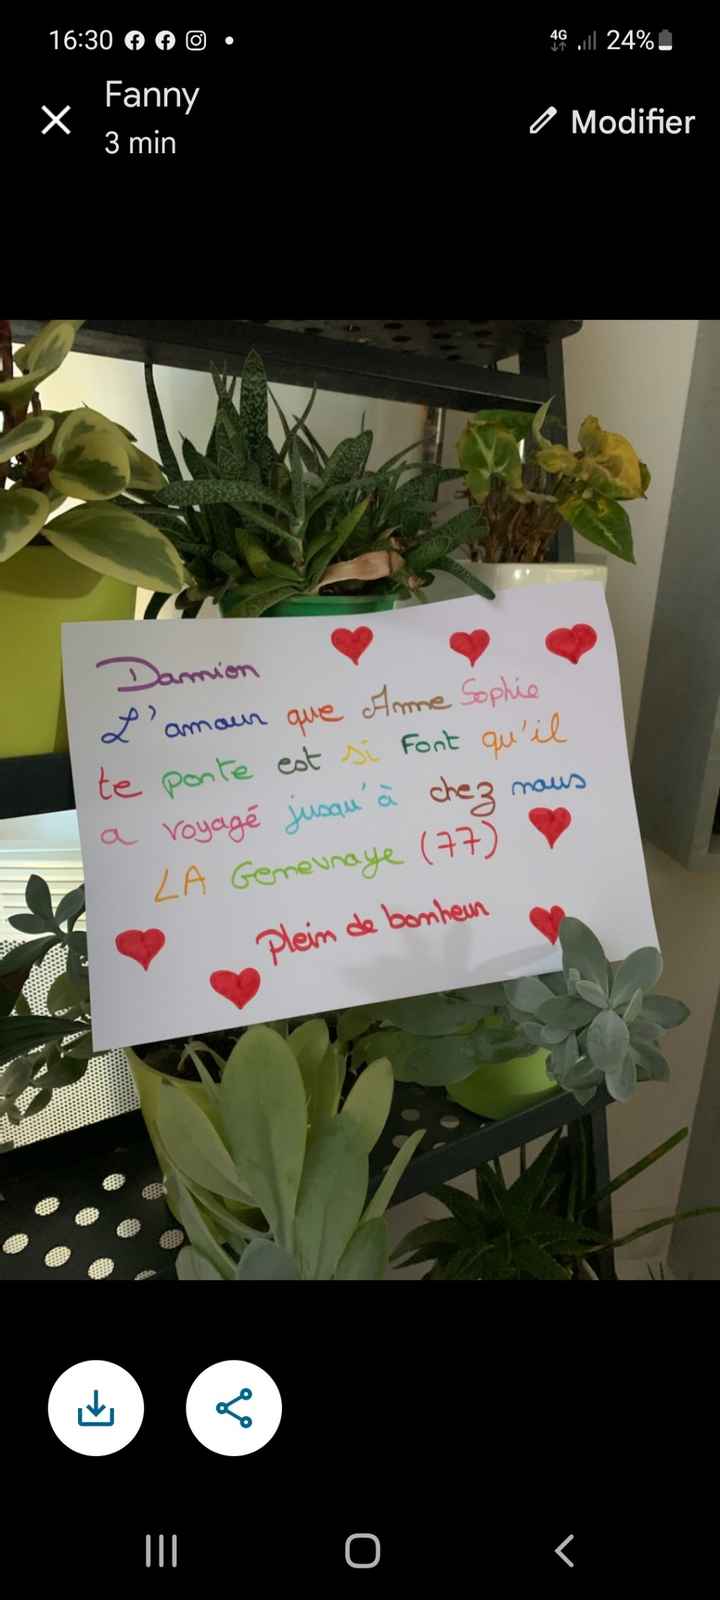 16:30
4G 24%
Fanny
3 min
Modifier
Damien
L'amour que Anne Sophie
te porte est si Fort qu'il
a voyagé jusqu'à chez nous
LA Genevraye (77)
Plein de bonheur